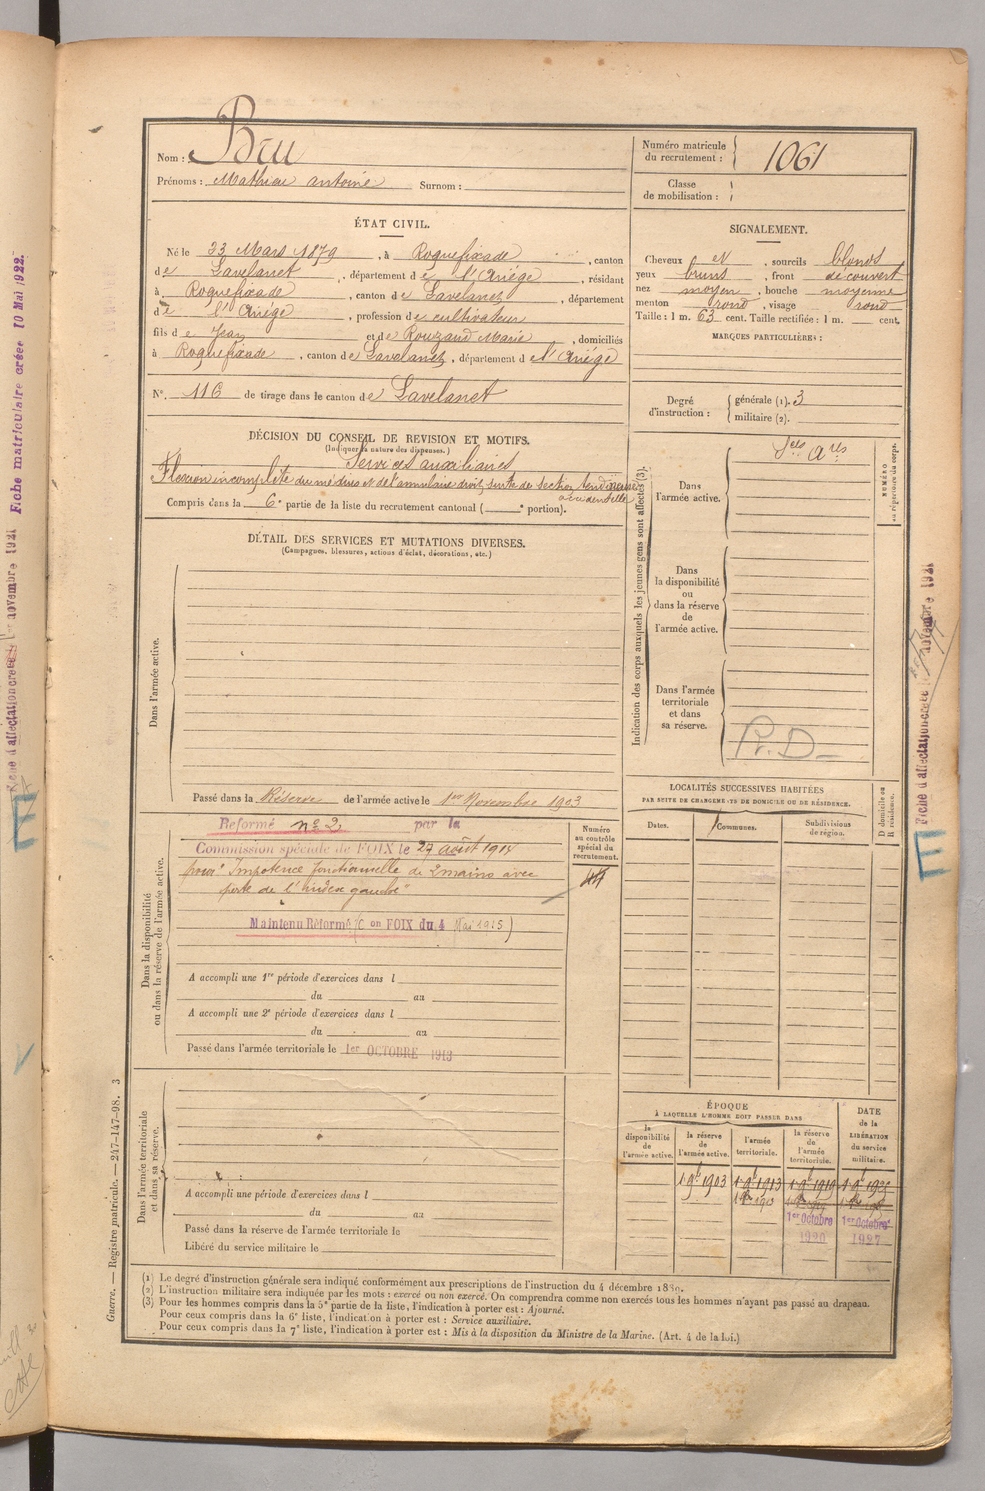 Nom : Bru
Prénoms : Mathieu antoine Surnom :
Numéro matricule
du recrutement : 1061
Classe
de mobilisation :
ÉTAT CIVIL.
Né le 23 Mars 1879, à Roquefixade, canton
de Lavelanet, département de l'Ariége, résidant
à Roquefixade, canton de Lavelanet, département
de l'Ariége, profession de cultivateur
fils de Jean et de Rouzaud Marie, domiciliés
à Roquefixade, canton de Lavelanet, département de l'Ariége
N°. 116 de tirage dans le canton de Lavelanet
SIGNALEMENT.
Cheveux et, sourcils blonds
yeux bruns, front découvert
nez moyen, bouche moyenne
menton rond, visage rond
Taille : 1 m. 63 cent. Taille rectifiée : 1 m. cent.
MARQUES PARTICULIÈRES :
Degré
d'instruction :
générale (1). 3
militaire (2).
DÉCISION DU CONSEIL DE REVISION ET MOTIFS.
(Indiquer la nature des dispenses.)
Services auxiliaires
Flexion incomplète du médius et de l'annulaire droit, suite de section tendineuse
accidentelle
Compris dans la 6e partie de la liste du recrutement cantonal ( e portion).
DÉTAIL DES SERVICES ET MUTATIONS DIVERSES.
(Campagnes, blessures, actions d'éclat, décorations, etc.)
Dans l'armée active.
Passé dans la Réserve de l'armée active le 1er Novembre 1903
Indication des corps auxquels les jeunes gens sont affectés (3).
NUMÉRO
au répertoire du corps.
Dans
l'armée active.
Ses ares
Dans
la disponibilité
ou
dans la réserve
de
l'armée active.
Dans l'armée
territoriale
et dans
sa réserve.
R.D.
Dans la disponibilité
ou dans la réserve de l'armée active.
Réformé n° 2 par la
Commission spéciale de FOIX le 27 août 1914
pour "Impotence fonctionnelle de 2 mains avec
perte de l'index gauche"
Maintenu Réformé (Con FOIX du 4 Mai 1915)
Numéro
au contrôle
spécial du
recrutement.
A accompli une 1re période d'exercices dans l
du au
A accompli une 2e période d'exercices dans l
du au
Passé dans l'armée territoriale le 1er OCTOBRE 1913
LOCALITÉS SUCCESSIVES HABITÉES
PAR SUITE DE CHANGEMENTS DE DOMICILE OU DE RÉSIDENCE.
Dates. Communes. Subdivisions
de région.
D domicile ou
R résidence.
Dans l'armée territoriale
et dans sa réserve.
A accompli une période d'exercices dans l
du au
Passé dans la réserve de l'armée territoriale le
Libéré du service militaire le
ÉPOQUE
À LAQUELLE L'HOMME DOIT PASSER DANS
la
disponibilité
de
l'armée active.
la réserve
de
l'armée active.
l'armée
territoriale.
la réserve
de
l'armée
territoriale.
DATE
de la
LIBÉRATION
du service
militaire.
1 9bre 1903 1 9bre 1913 1 9bre 1919 1 9bre 1925
1er Octobre 1er Octobre
1920 1927
(1) Le degré d'instruction générale sera indiqué conformément aux prescriptions de l'instruction du 4 décembre 1889.
(2) L'instruction militaire sera indiquée par les mots : exercé ou non exercé. On comprendra comme non exercés tous les hommes n'ayant pas passé au drapeau.
(3) Pour les hommes compris dans la 5e partie de la liste, l'indication à porter est : Ajourné.
Pour ceux compris dans la 6e liste, l'indication à porter est : Service auxiliaire.
Pour ceux compris dans la 7e liste, l'indication à porter est : Mis à la disposition du Ministre de la Marine. (Art. 4 de la loi.)
Guerre. — Registre matricule. — 247-147-98. 3
Fiche d'affectation créée le 1er novembre 1921 Fiche matriculaire créée 10 Mai 1922.
Fiche d'affectation créée le novembre 1921